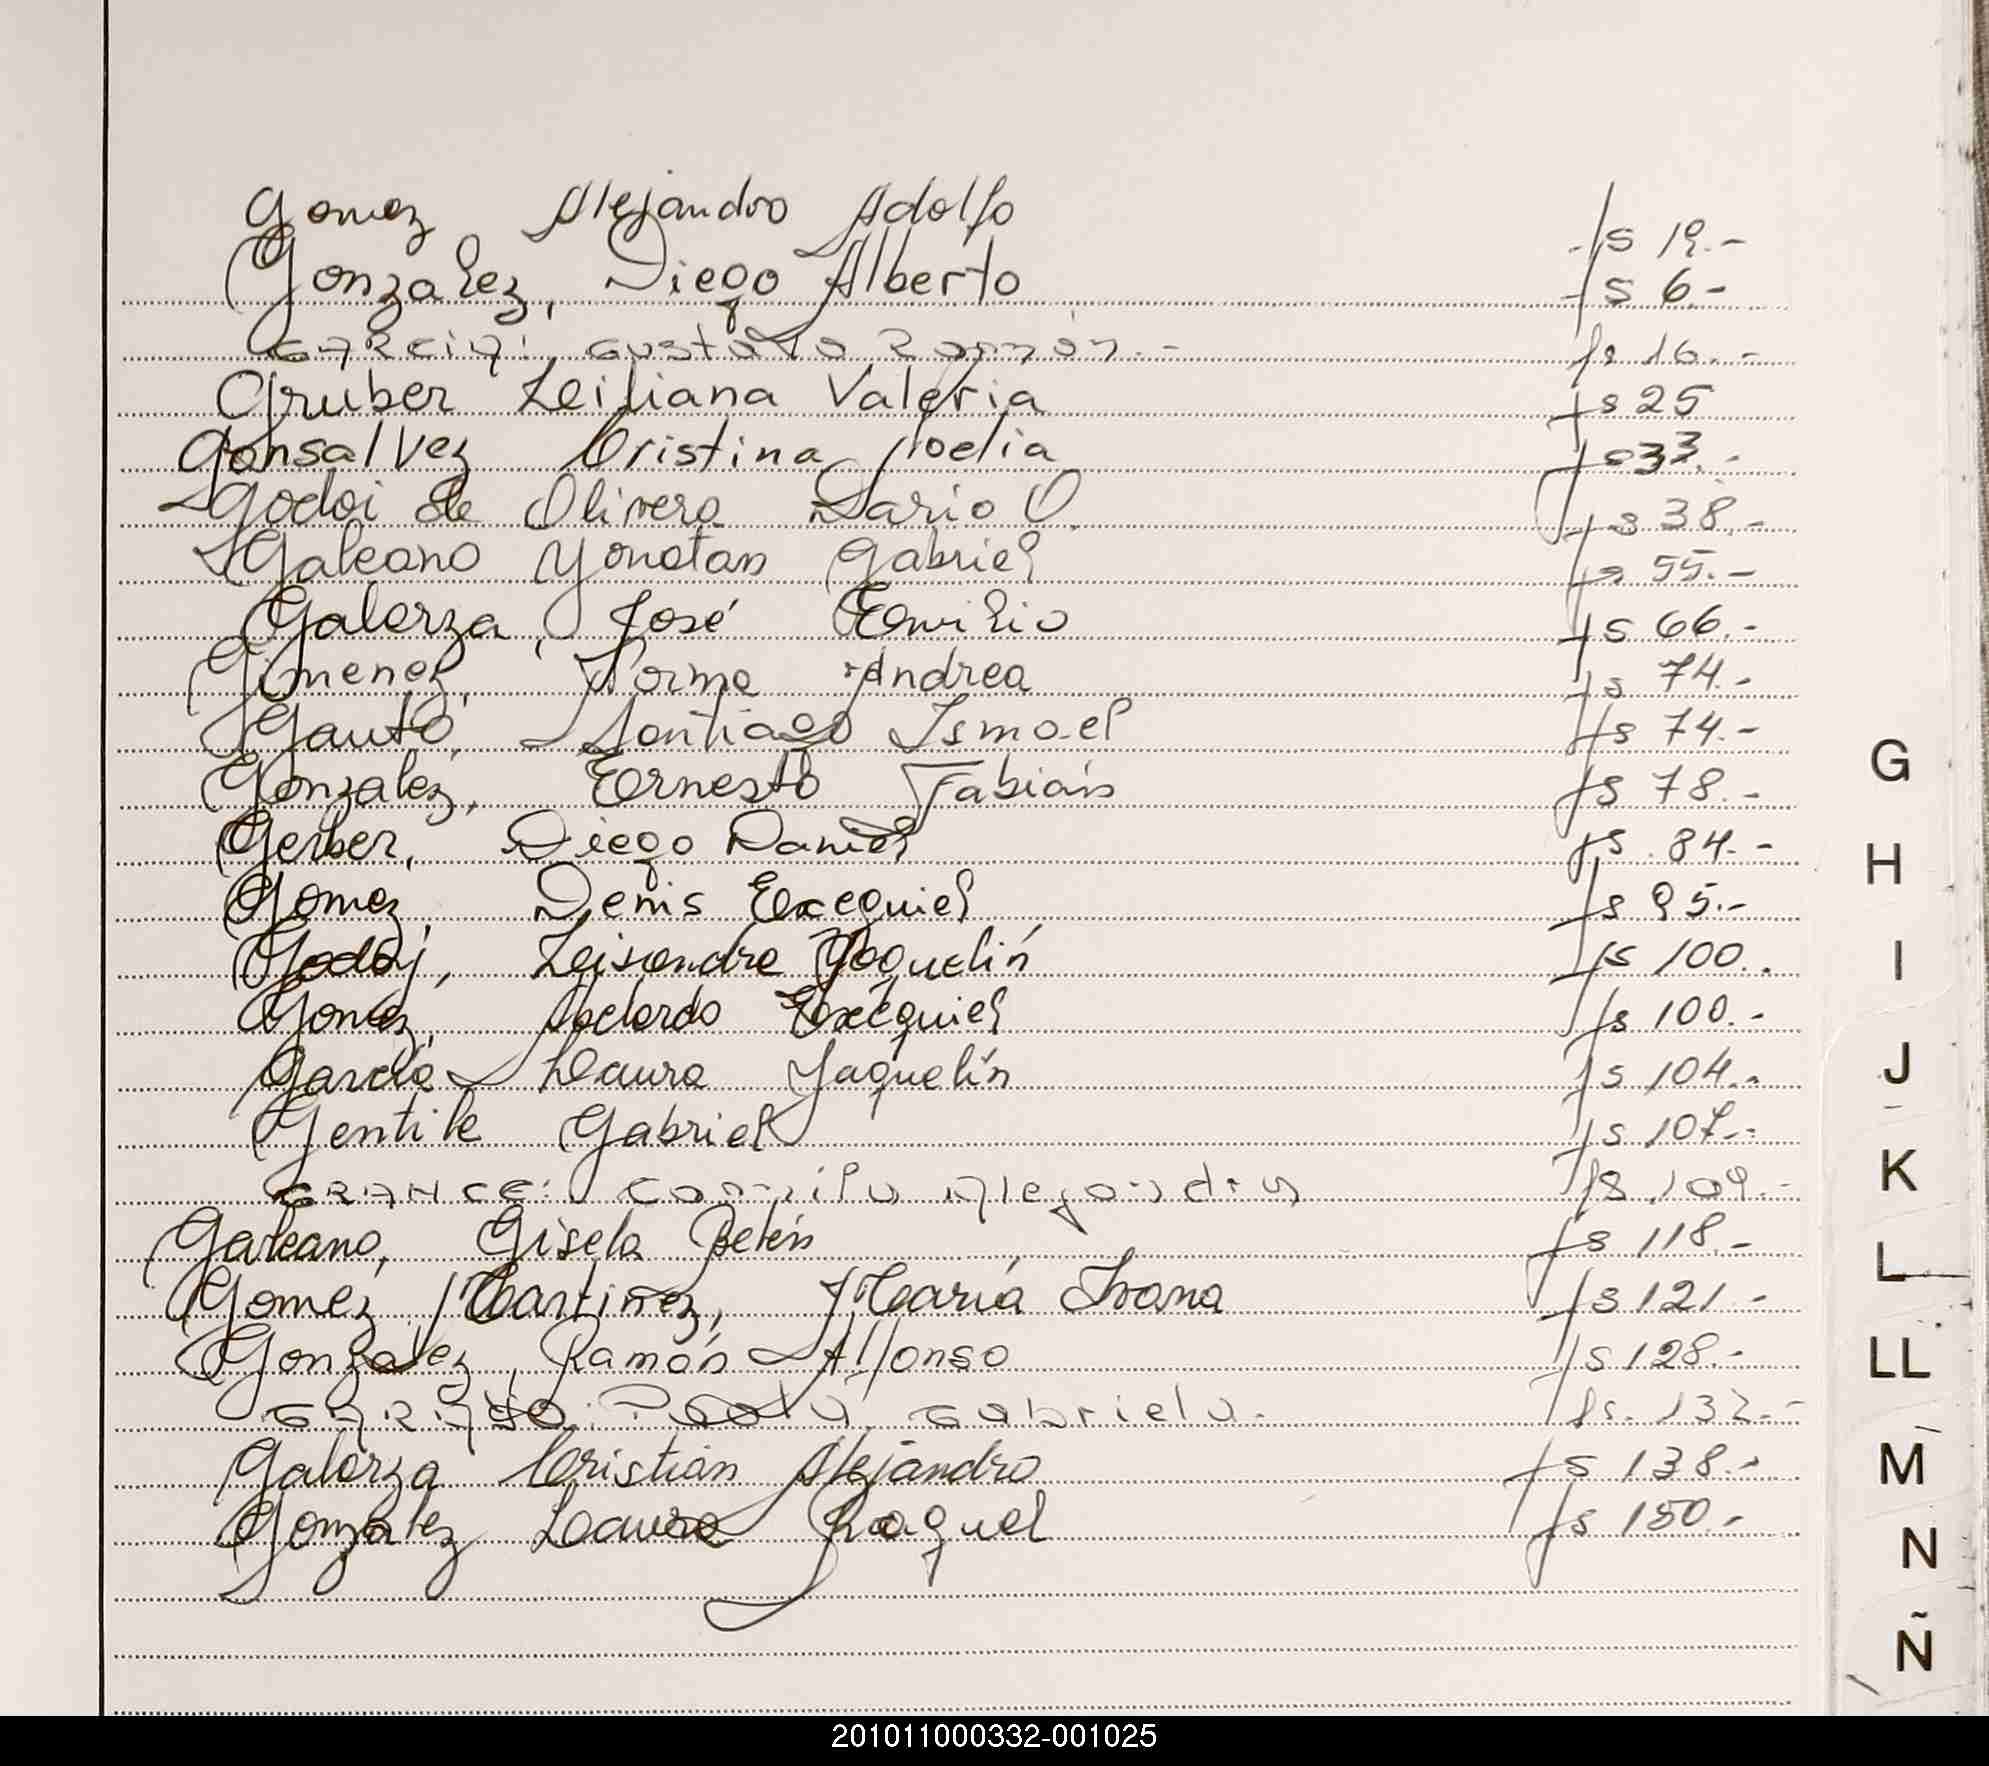 Gomez Alejandro Adolfo fs 19.-
Gonzalez, Diego Alberto fs 6.-
GARCIA: Gustavo Ramón.- fs 16.-
Gruber Leiliana Valeria fs 25
Gonsalvez Cristina Noelia fs 33.-
Godoi de Olivera Dario O. fs 38.-
Galeano Yonatan Gabriel fs 55.-
Galarza, José Emilio fs 66.-
Gimenez, Norma Andrea fs 74.-
Gauto, Santiago Ismael fs 74.-
Gonzalez, Ernesto Fabián fs 78.-
Gerber, Diego Daniel fs 84.-
Gomez, Denis Exequiel fs 95.-
Godoy, Leisandra Yaquelín fs 100.
Gomez, Abelardo Exequiel fs 100.-
García Laura Yaquelín fs 104.-
Gentile Gabriel fs 107.-
GRANCE: Camila Alejandra fs 109.-
Galeano, Gisela Belén fs 118.-
Gomez Martinez, María Ivana fs 121.-
Gonzalez, Ramón Alfonso fs 128.-
Gabriela.- fs. 132.-
Galarza Cristian Alejandro fs 138.-
Gonzalez Laura Raquel fs 150.-
G
H
I
J
K
L
LL
M
N
Ñ
201011000332-001025